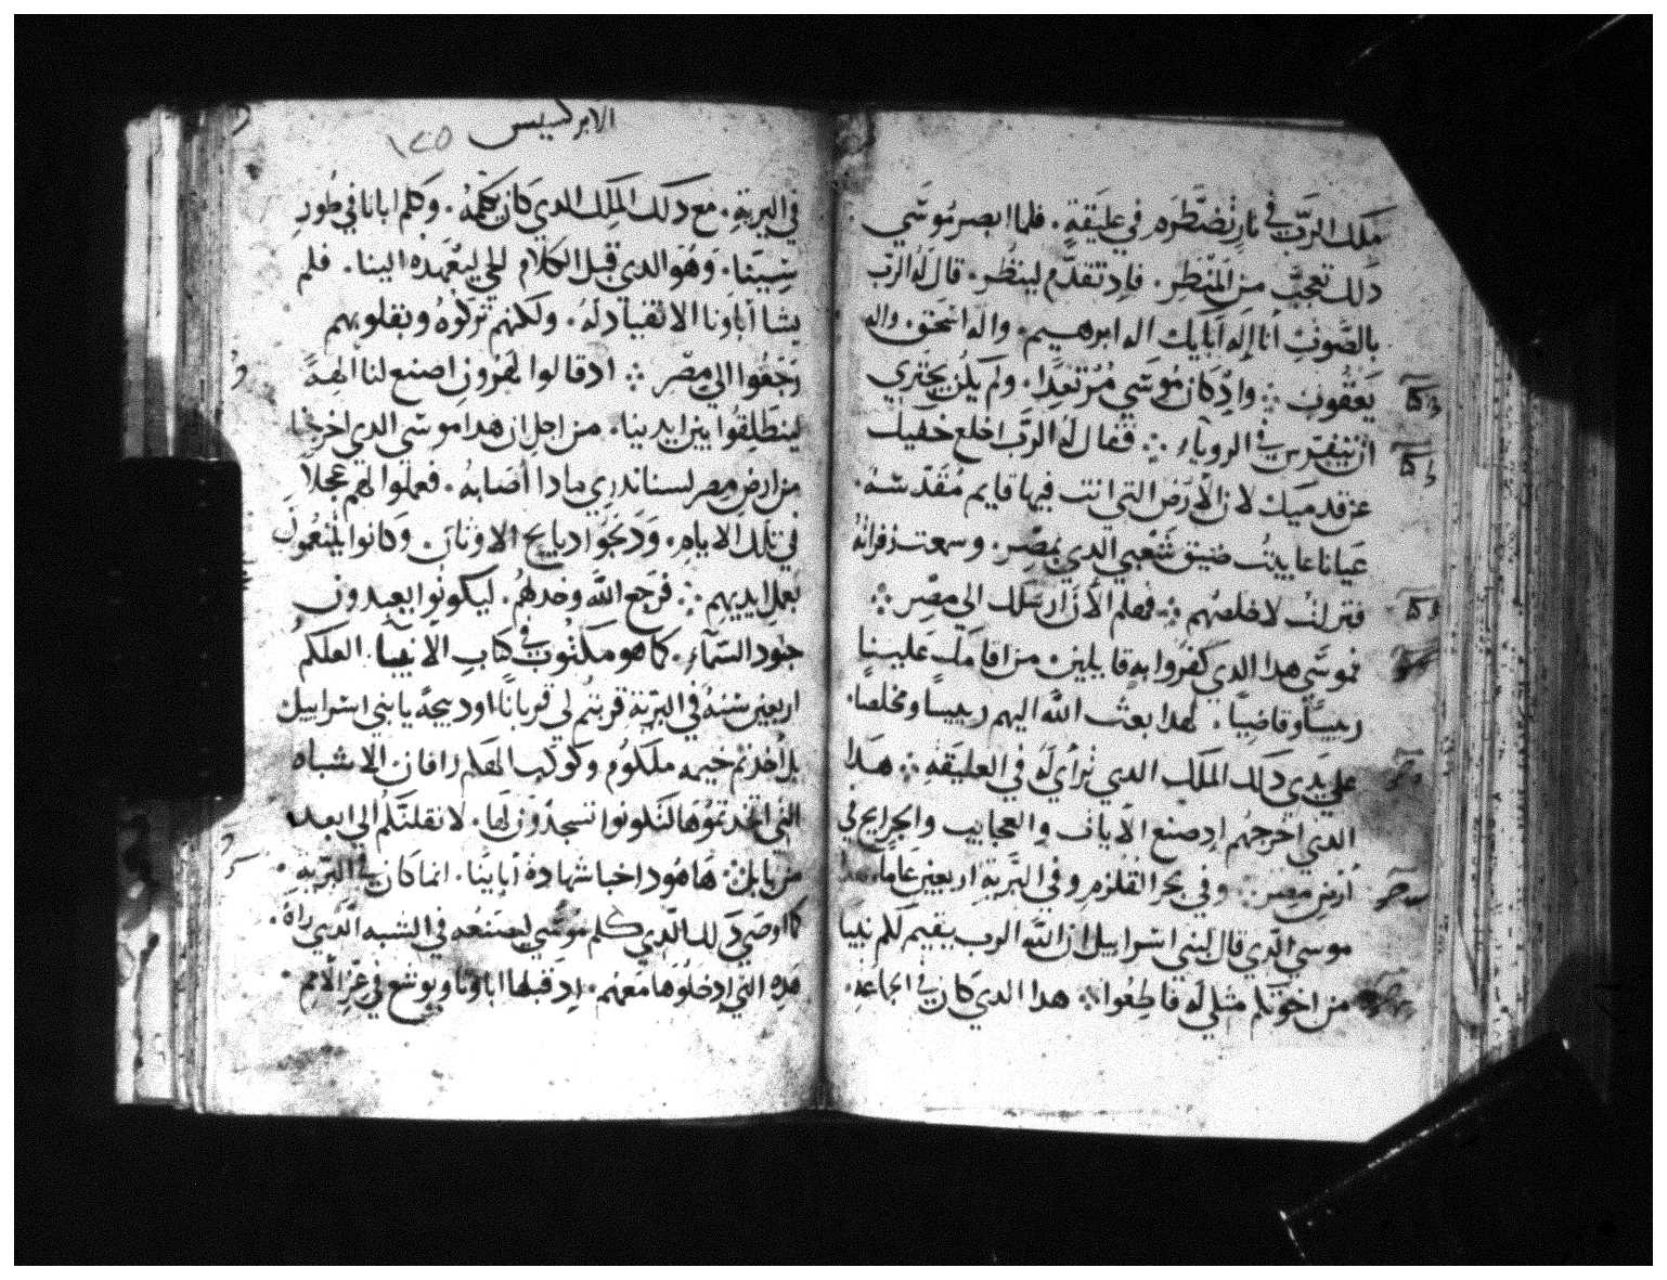 ملك الرب في نار تضطرم في عليقة. فلما ابصر موسي
دلك تعجب من المنظر. فاد تقدم لينظر. قال له الرب
بالصوت انا اله ابايك اله ابرهيم. واله اسحق. واله
يعقوب ܀ واد كان موسي مرتعدا. ولم يكن يجتري
ان يتفرس في الروياء ܀ فقال له الرب اخلع خفيك
عن قدميك لان الارض التي انت فيها قايم مقدسه.
عيانا عاينت ضيق شعبي الدي بمصر. وسمعت زفراته
فنزلت لاخلصهم ܀ فهلم الان ارسلك الي مصر ܀
فموسي هدا الدي كفروا به قايلين من اقامك علينا
رييسا وقاضيا. لهدا بعث الله اليهم رييسا ومخلصا.
علي يدي دلك الملك الدي تراي له في العليقة ܀ هدا
الدي اخرجهم اد صنع الايات والعجايب والجرايح في
ارض مصر ܀ وفي بحر القلزم وفي البرية اربعين عاما. هدا
موسي الدي قال لبني اسراييل ان الله الرب يقيم لكم نبيا
من اخوتكم مثلي له فاطيعوا ܀ هدا الدي كان في الجماعه.
الابركسيس ١٢٥
في البرية. مع دلك الملك الدي كان يكلمه. وكلم ابانا في طور
سينا. وهو الدي قبل الكلام الحي ليعهده الينا. فلم
يشا اباونا الانقياد له. ولكنهم تركوه وبقلوبهم
رجعوا الي مصر ܀ اد قالوا لهرون اصنع لنا الهة
لينطلقوا بين ايدينا. من اجل ان هدا موسي الدي اخرجنا
من ارض مصر لسنا ندري مادا اصابه. فعملوا لهم عجلا
في تلك الايام. ودبحوا دبايح الاوتان وكانوا يتنعمون
بعمل ايديهم ܀ فرجع الله وخدلهم. ليكونوا يعبدون
جنود السماء. كما هو مكتوب في كتاب الانبيا. العلكم
اربعين سنه في البرية قربتم لي قربانا او دبيحة يا بني اسراييل
بل اخدتم خيمه ملكوم وكوكب الهكم رافان الاشباه
التي اتخدتموها لتكونوا تسجدون لها. لانقلنكم الي ابعد
من بابل. ها هود اخبا شهادة اباينا. انما كان في البرية.
كما اوصي دلك الدي كلم موسي ليصنعه في الشبه الدي راه.
هده التي ادخلوها معهم. اد قبلها اباونا ويوشع في عز الامم